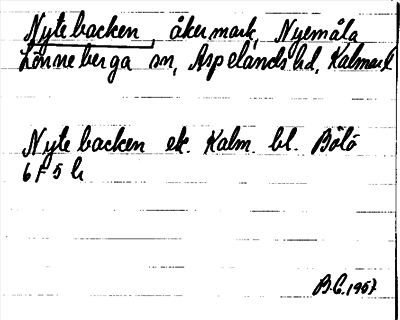 Nytebacken, åkermark, Nyemåla
Lönneberga sn, Aspelands hd, Kalmar l
Nytebacken ek. Kalm. bl. Bölö
6 F 5 h
B.C. 1957